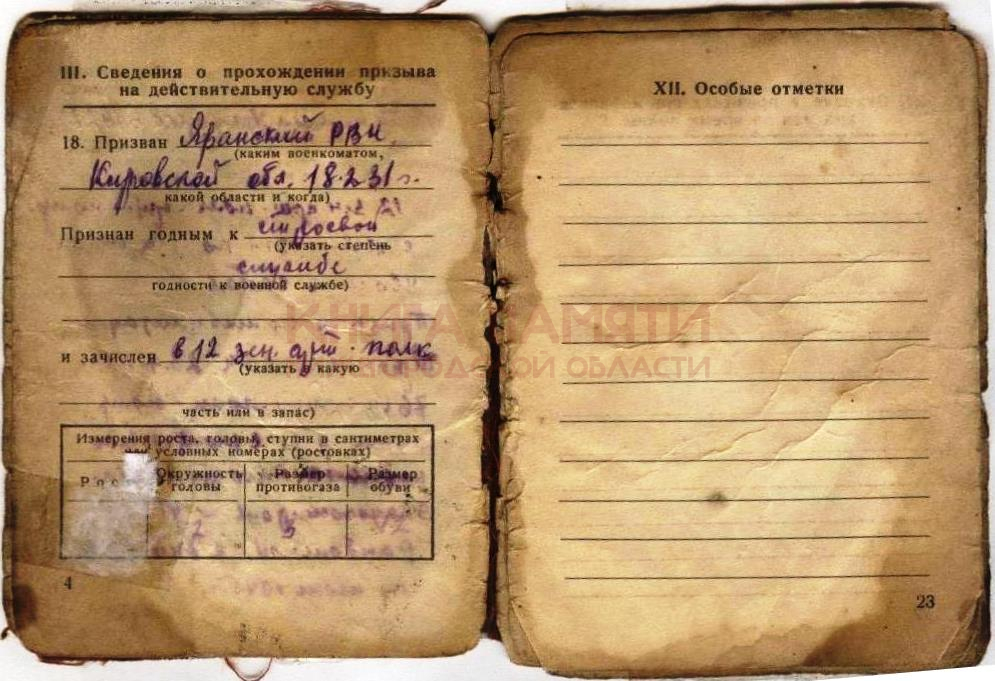 III. Сведения о прохождении призыва
на действительную службу
18. Призван Яранский РВК
(каким военкоматом,
Кировской обл. 18.2.31 г.
какой области и когда)
Признан годным к строевой
(указать степень
службе
годности к военной службе)
и зачислен в 12 зен. арт. полк
(указать в какую
часть или в запас)
Измерения роста, головы, ступни в сантиметрах
условных номерах (ростовках)
Рос Окружность головы Размер противогаза Размер обуви
3
4
XII. Особые отметки
КНИГА ПАМЯТИ
ОБЛАСТИ
23